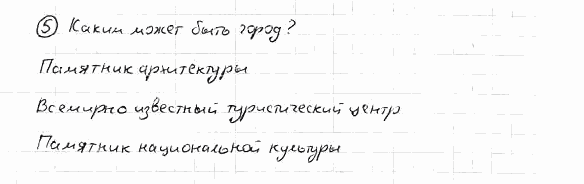 ⑤ Каким может быть город?
Памятник архитектуры
Всемирно известный туристический центр
Памятник национальной культуры